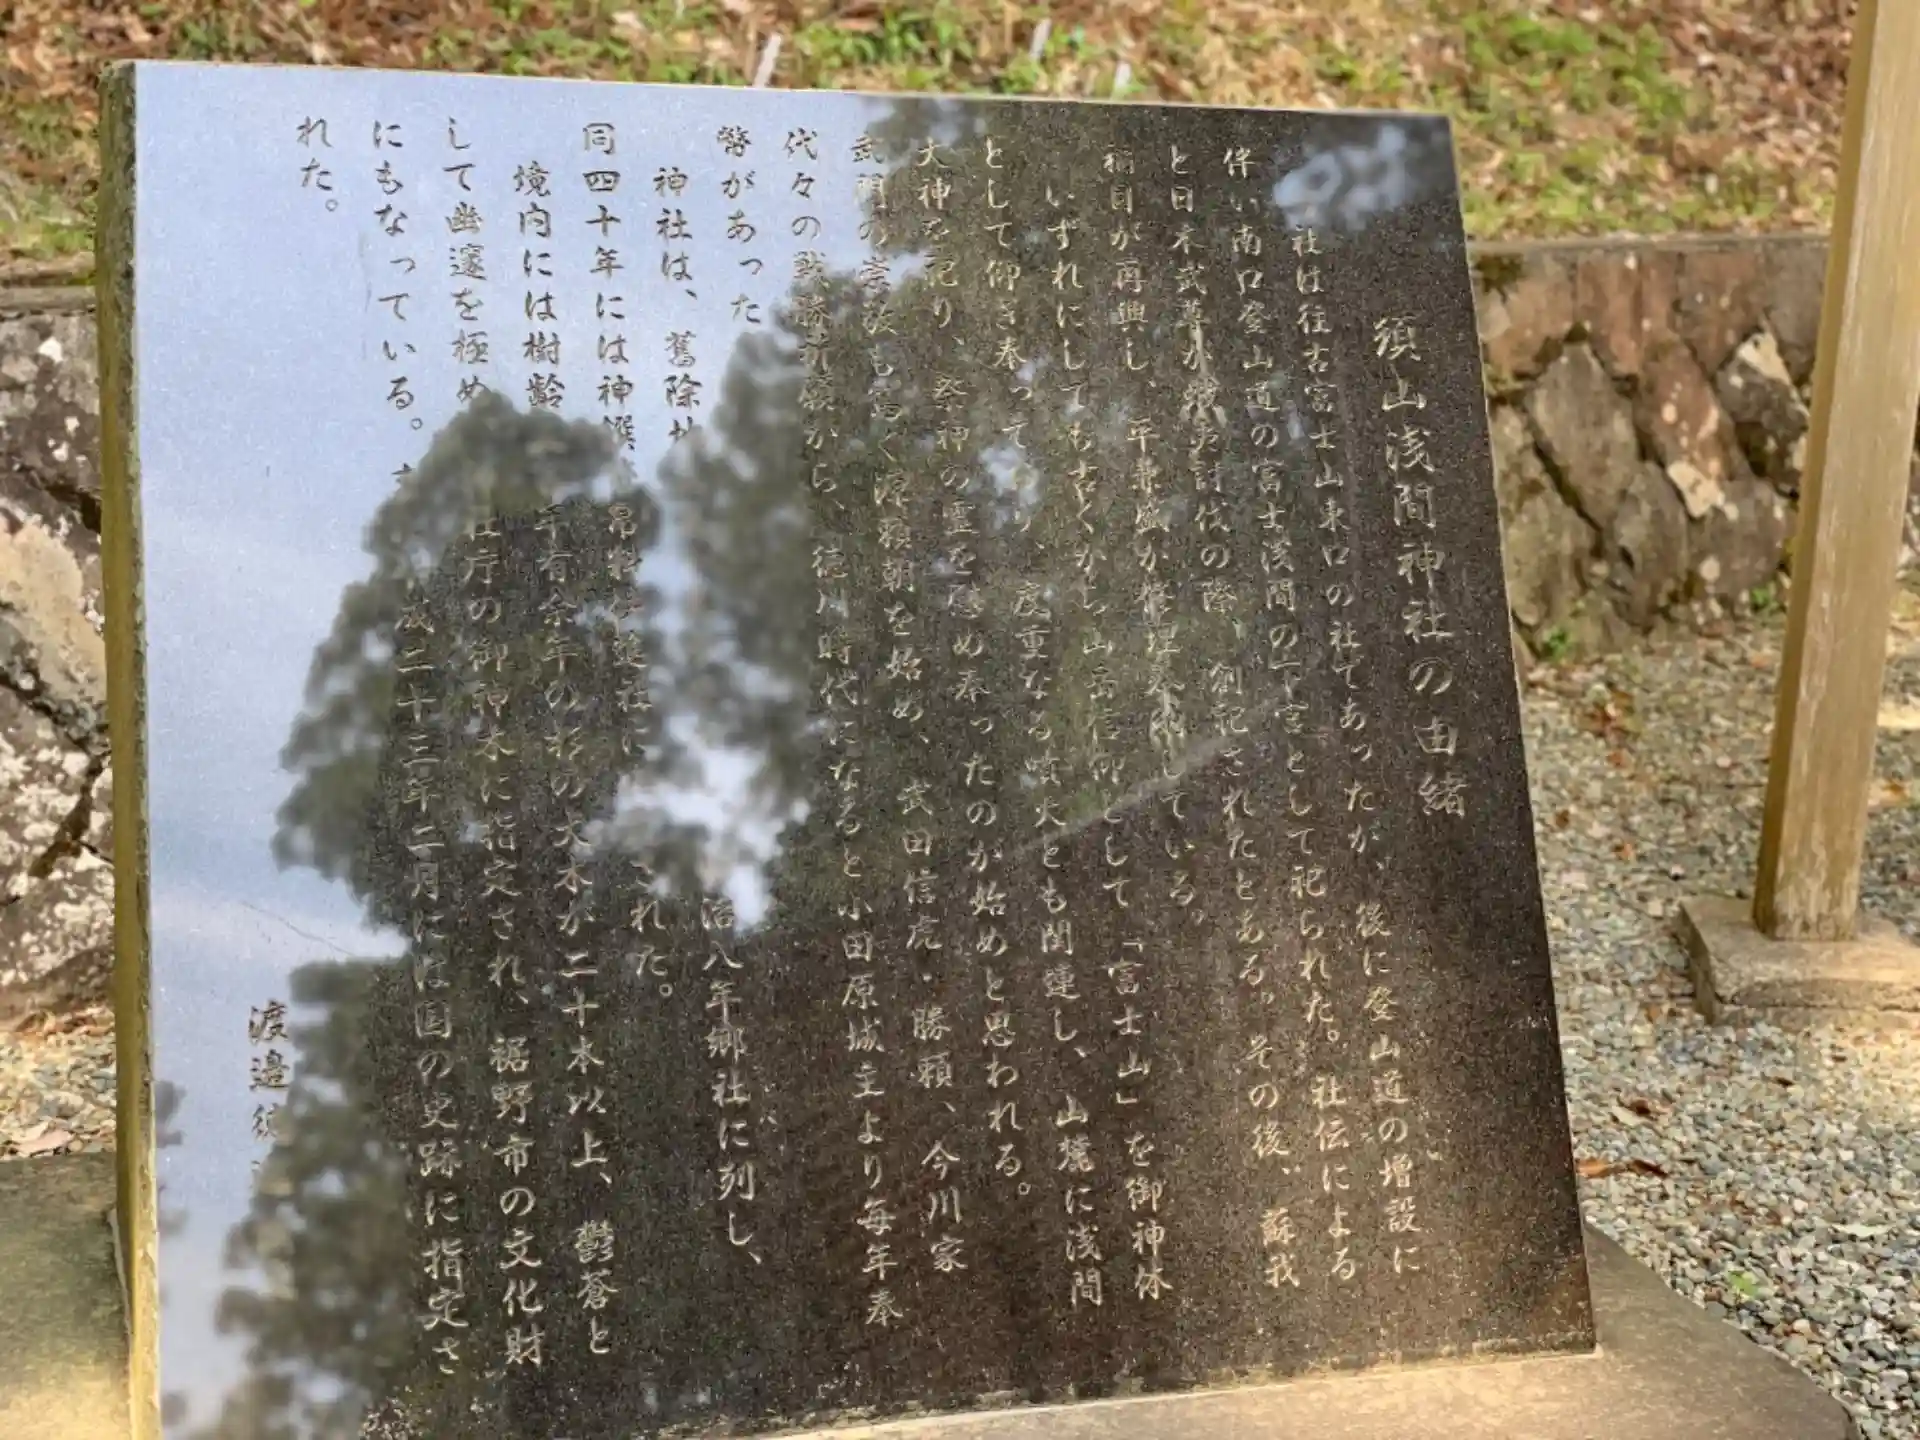 須山浅間神社の由緒
社は往古富士山東口の社であったが、後に登山道の増設に
伴い南口登山道の富士浅間の下宮として祀られた。社伝による
と日本武尊が蝦夷討伐の際、創祀されたとある。その後、蘇我
稲目が再興し、平貞盛が修理奉納している。
いずれにしても古くから山岳信仰として「富士山」を御神体
として仰ぎ奉って、度重なる噴火とも関連し、山麓に浅間
大神を祀り、祭神の霊を慰め奉ったのが始めと思われる。
武門の崇敬も篤く源頼朝を始め、武田信虎・勝頼、今川家
代々の戦勝祈願から、徳川時代になると小田原城主より毎年奉
幣があった
神社は、舊除地 治八年郷社に列し、
同四十年には神饌幣帛料供進社に された。
境内には樹齢 年有余年の杉の大木が二十本以上、鬱蒼と
して幽邃を極め 庁の御神木に指定され、裾野市の文化財
にもなっている。 成二十三年二月には国の史跡に指定さ
れた。
渡邉